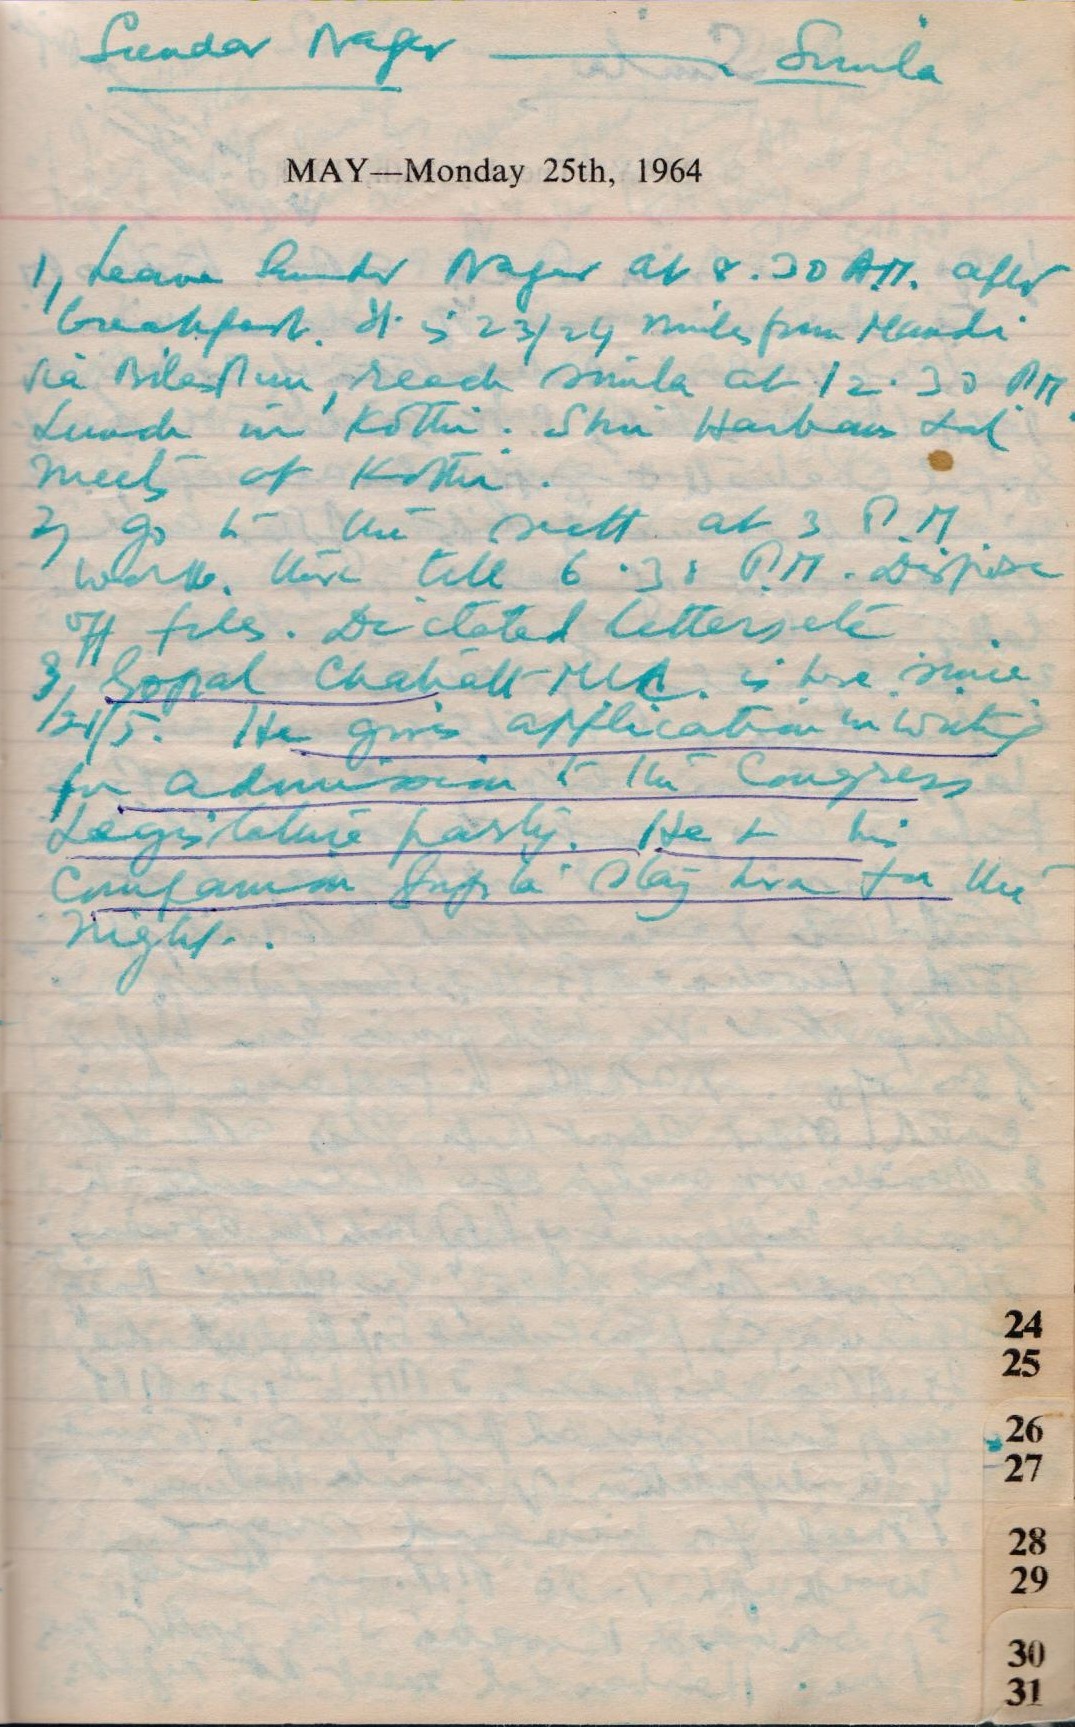 Sundar Nagar — Simla
MAY—Monday 25th, 1964
1, Leave Sundar Nagar at 8.30 A.M. after
breakfast. It is 23/24 miles from Mandi
via Bilaspur, reach Simla at 12.30 PM.
Lunch in Kothi. Shri Harbans Lal
meets at Kothi.
2, go to the sectt at 3 P.M
work there till 6.30 P.M. Dispose
off files. Dictated letters etc
3, Gopal MLA. is here since
21/5. He gives application in writing
for admission to the Congress
Legislature party. He & his
companion Gupta stay here for the
night.
24
25
26
27
28
29
30
31